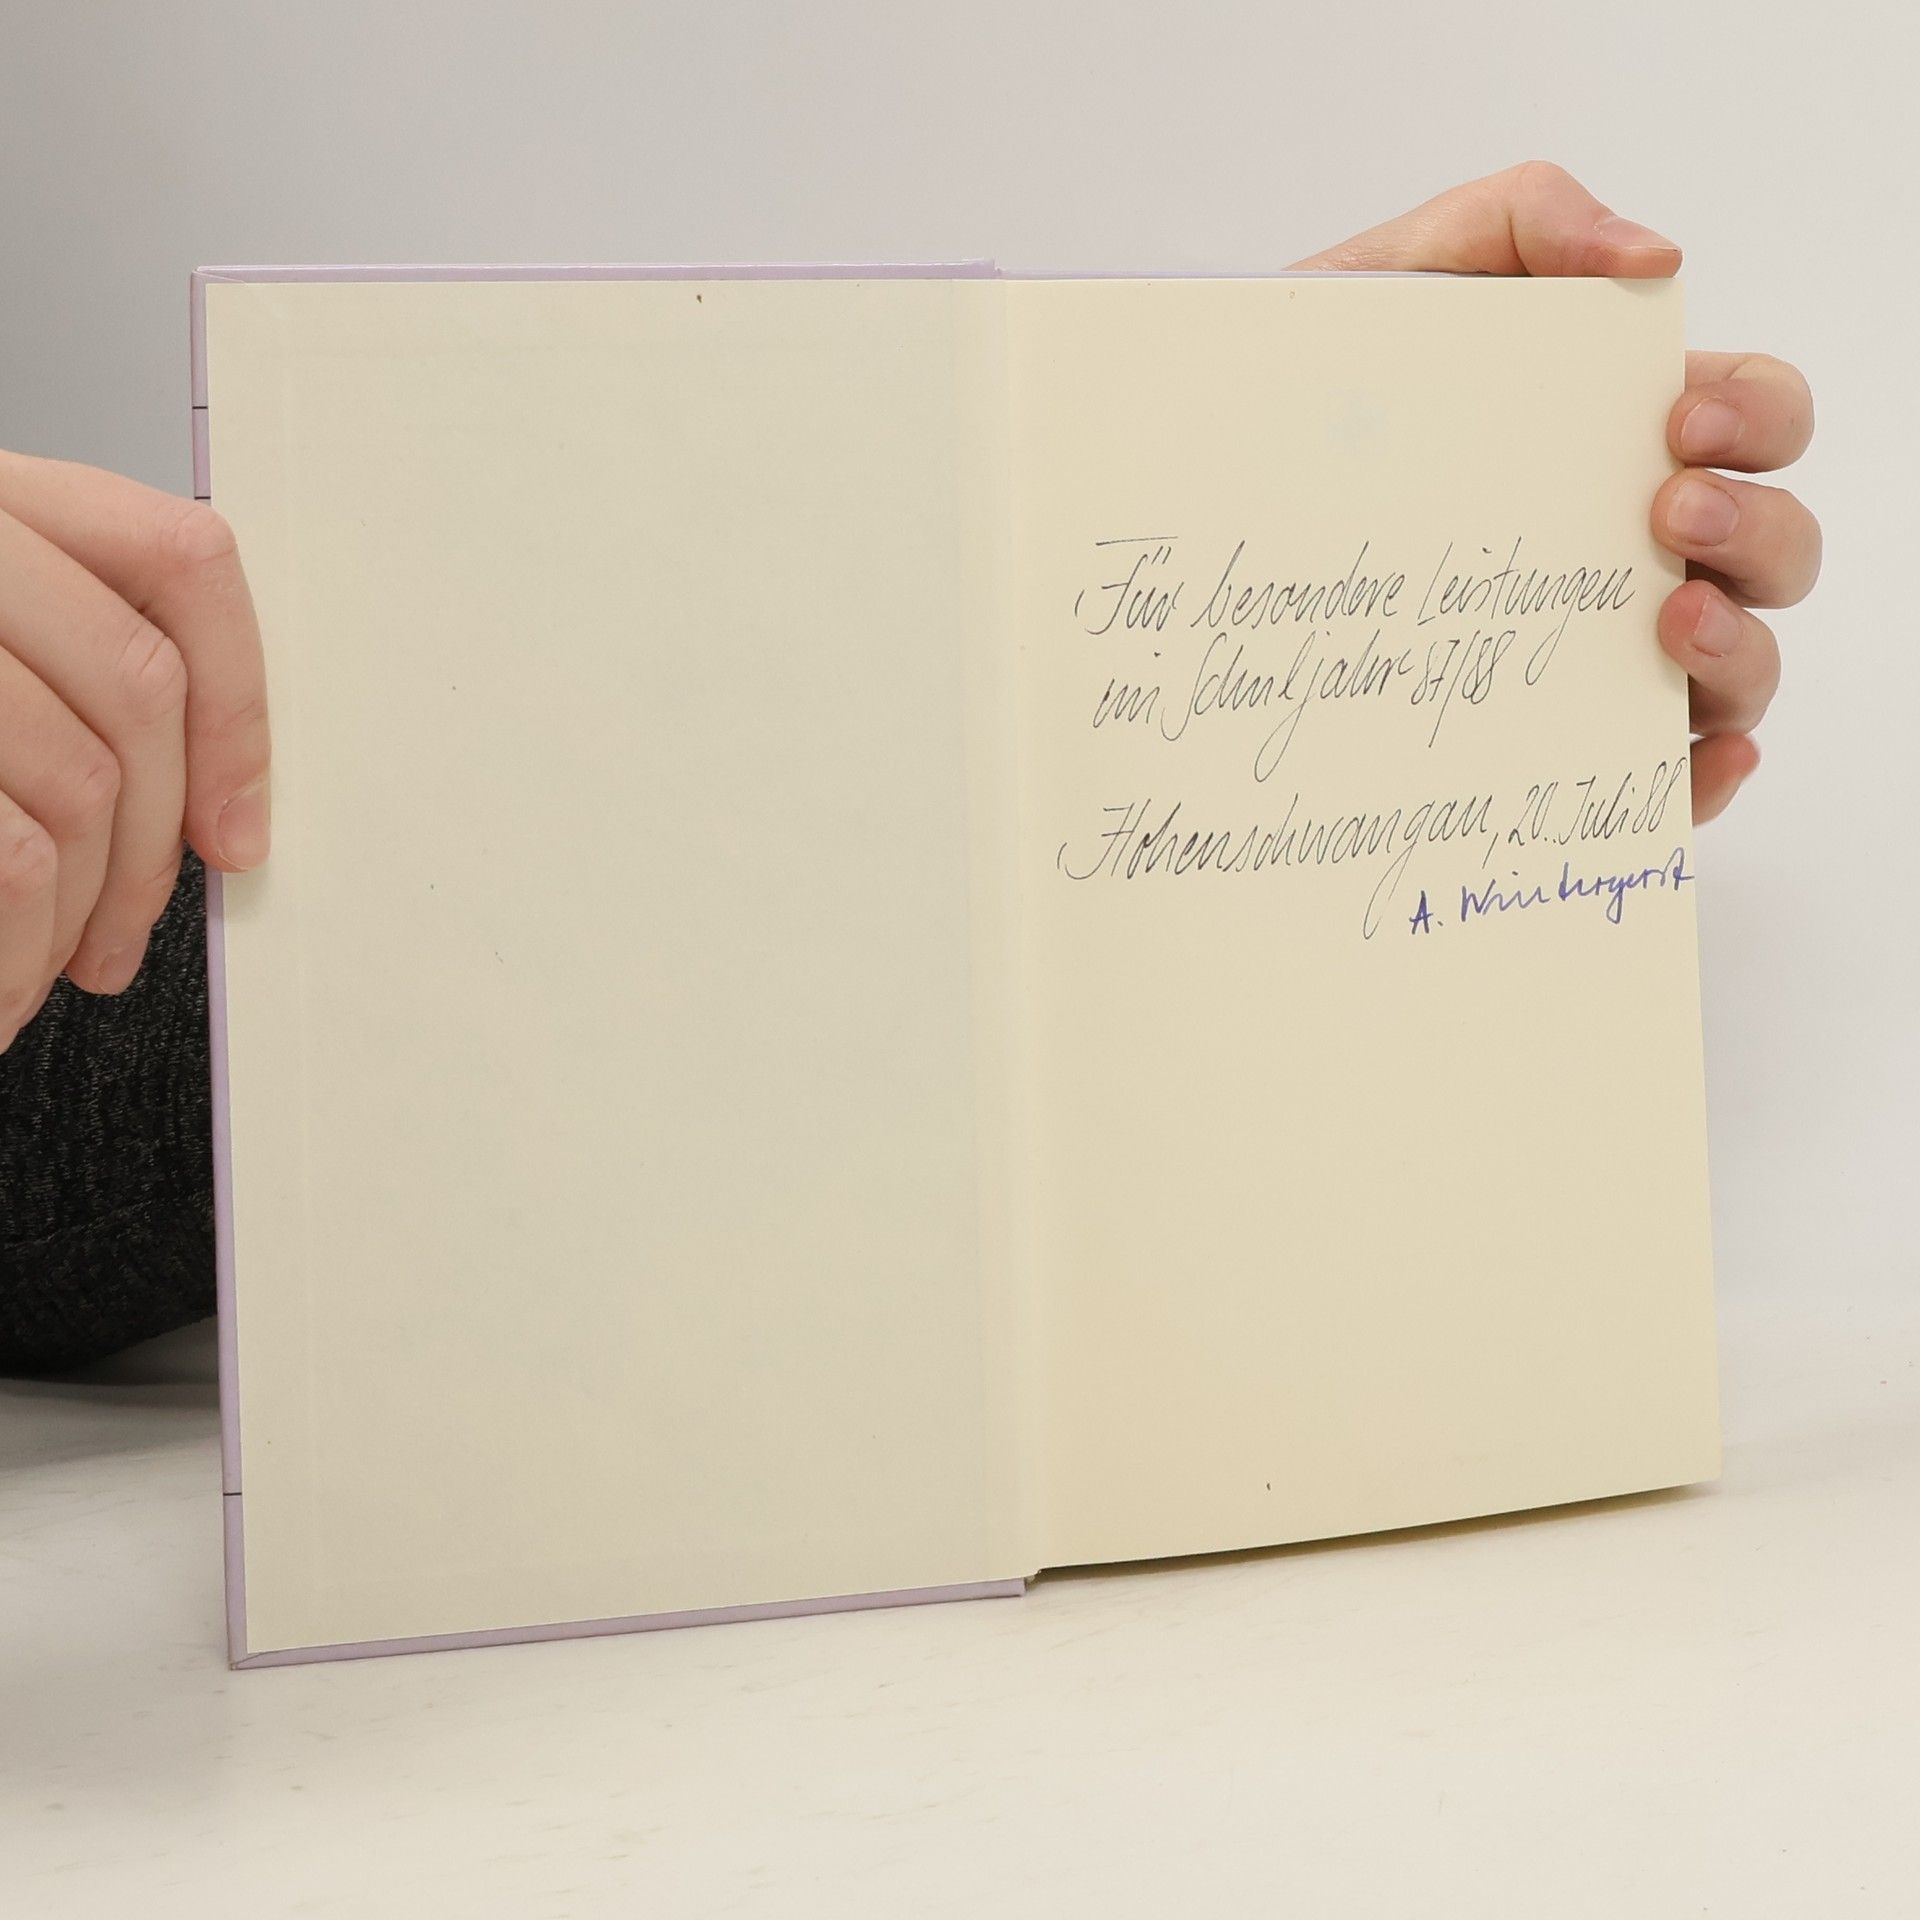 Für besondere Leistungen
im Schuljahr 87/88
Hohenschwangau, 20. Juli 88
A. Wintergerst